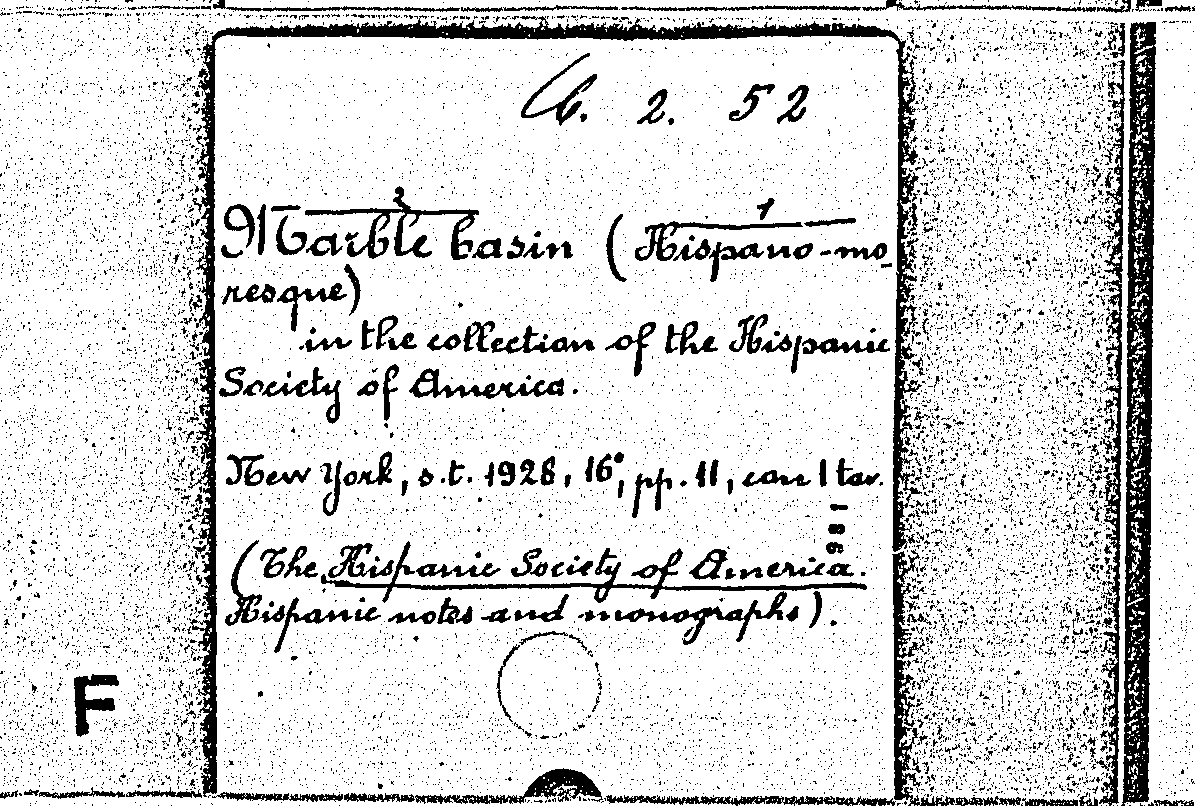 6. 2. 52
2 1
Marble basin (Hispano-mo
resque)
in the collection of the Hispanic
Society of America.
New York, s.t. 1928, 16°, pp. 11, con 1 tav.
981
(The Hispanic Society of America.
Hispanic notes and monographs).
F